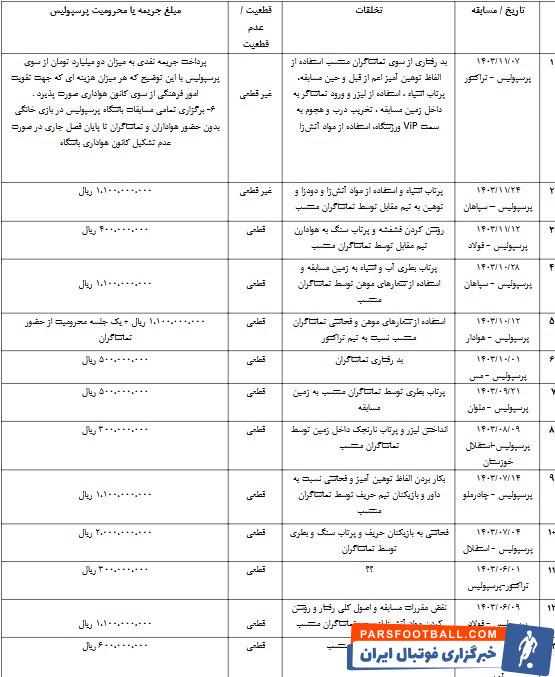 تاریخ / مسابقه
تخلفات
قطعیت /
عدم
قطعیت
مبلغ جریمه یا محرومیت پرسپولیس
۱
۱۴۰۳/۱۱/۰۷
پرسپولیس - تراکتور
بد رفتاری از سوی تماشاگران منتسب استفاده از
الفاظ توهین آمیز اعم از قبل و حین مسابقه،
پرتاب اشیاء ، استفاده از لیزر و ورود تماشاگر به
داخل زمین مسابقه ، تخریب درب و هجوم به
سمت ViP ورزشگاه، استفاده از مواد آتش‌زا
غیر قطعی
پرداخت جریمه نقدی به میزان دو میلیارد تومان از سوی
پرسپولیس با این توضیح که هر میزان هزینه ای که جهت تقویت
امور فرهنگی از سوی کانون هواداری صورت پذیرد .
۶- برگزاری تمامی مسابقات باشگاه پرسپولیس در بازی خانگی
بدون حضور هواداران و تماشاگران تا پایان فصل جاری در صورت
عدم تشکیل کانون هواداری باشگاه
۲
۱۴۰۳/۱۱/۲۴
پرسپولیس – سپاهان
پرتاب اشیاء و استفاده از مواد آتش‌زا و دودزا و
توهین به تیم مقابل توسط تماشاگران منتسب
غیر قطعی
۱،۱۰۰،۰۰۰،۰۰۰ ریال
۳
۱۴۰۳/۱۱/۱۲
پرسپولیس - فولاد
روشن کردن فشفشه و پرتاب سنگ به هوادارن
تیم مقابل توسط تماشاگران منتسب
قطعی
۴۰۰،۰۰۰،۰۰۰ ریال
۴
۱۴۰۳/۱۰/۲۸
پرسپولیس - سپاهان
پرتاب بطری آب و اشیاء به زمین مسابقه و
استفاده از شعارهای موهن توسط تماشاگران
منتسب
قطعی
۱،۱۰۰،۰۰۰،۰۰۰ ریال
۵
۱۴۰۳/۱۰/۱۲
پرسپولیس - هوادار
استفاده از شعارهای موهن و فحاشی تماشاگران
منتسب نسبت به تیم تراکتور
قطعی
۱،۱۰۰،۰۰۰،۰۰۰ ریال + یک جلسه محرومیت از حضور
تماشاگران
۶
۱۴۰۳/۱۰/۰۱
پرسپولیس - مس
بد رفتاری تماشاگران
قطعی
۵۰۰،۰۰۰،۰۰۰ ریال
۷
۱۴۰۳/۰۹/۲۱
پرسپولیس - ملوان
پرتاب بطری توسط تماشاگران منتسب به زمین
مسابقه
قطعی
۵۰۰،۰۰۰،۰۰۰ ریال
۸
۱۴۰۳/۰۸/۰۹
پرسپولیس-استقلال
خوزستان
انداختن لیزر و پرتاب نارنجک داخل زمین توسط
تماشاگران منتسب
قطعی
۳۰۰،۰۰۰،۰۰۰ ریال
۹
۱۴۰۳/۰۷/۱۴
پرسپولیس - چادرملو
بکار بردن الفاظ توهین آمیز و فحاشی نسبت به
داور و بازیکنان تیم حریف توسط تماشاگران
منتسب
قطعی
۱،۱۰۰،۰۰۰،۰۰۰ ریال
۱۰
۱۴۰۳/۰۷/۰۴
پرسپولیس - استقلال
فحاشی به بازیکنان حریف و پرتاب سنگ و بطری
توسط تماشاگران
قطعی
۲،۰۰۰،۰۰۰،۰۰۰ ریال
۱۱
۱۴۰۳/۰۶/۰۱
تراکتور-پرسپولیس
؟؟
قطعی
۳۰۰،۰۰۰،۰۰۰ ریال
۱۲
۱۴۰۳/۰۶/۰۹
پرسپولیس - فولاد
نقض مقررات مسابقه و اصول کلی رفتار و روشن
کردن مواد آتش‌زا توسط تماشاگران منتسب
قطعی
۱،۱۰۰،۰۰۰،۰۰۰ ریال
منتسب
قطعی
۶۰۰،۰۰۰،۰۰۰ ریال
PARSFOOTBALL.COM
خبرگزاری فوتبال ایران